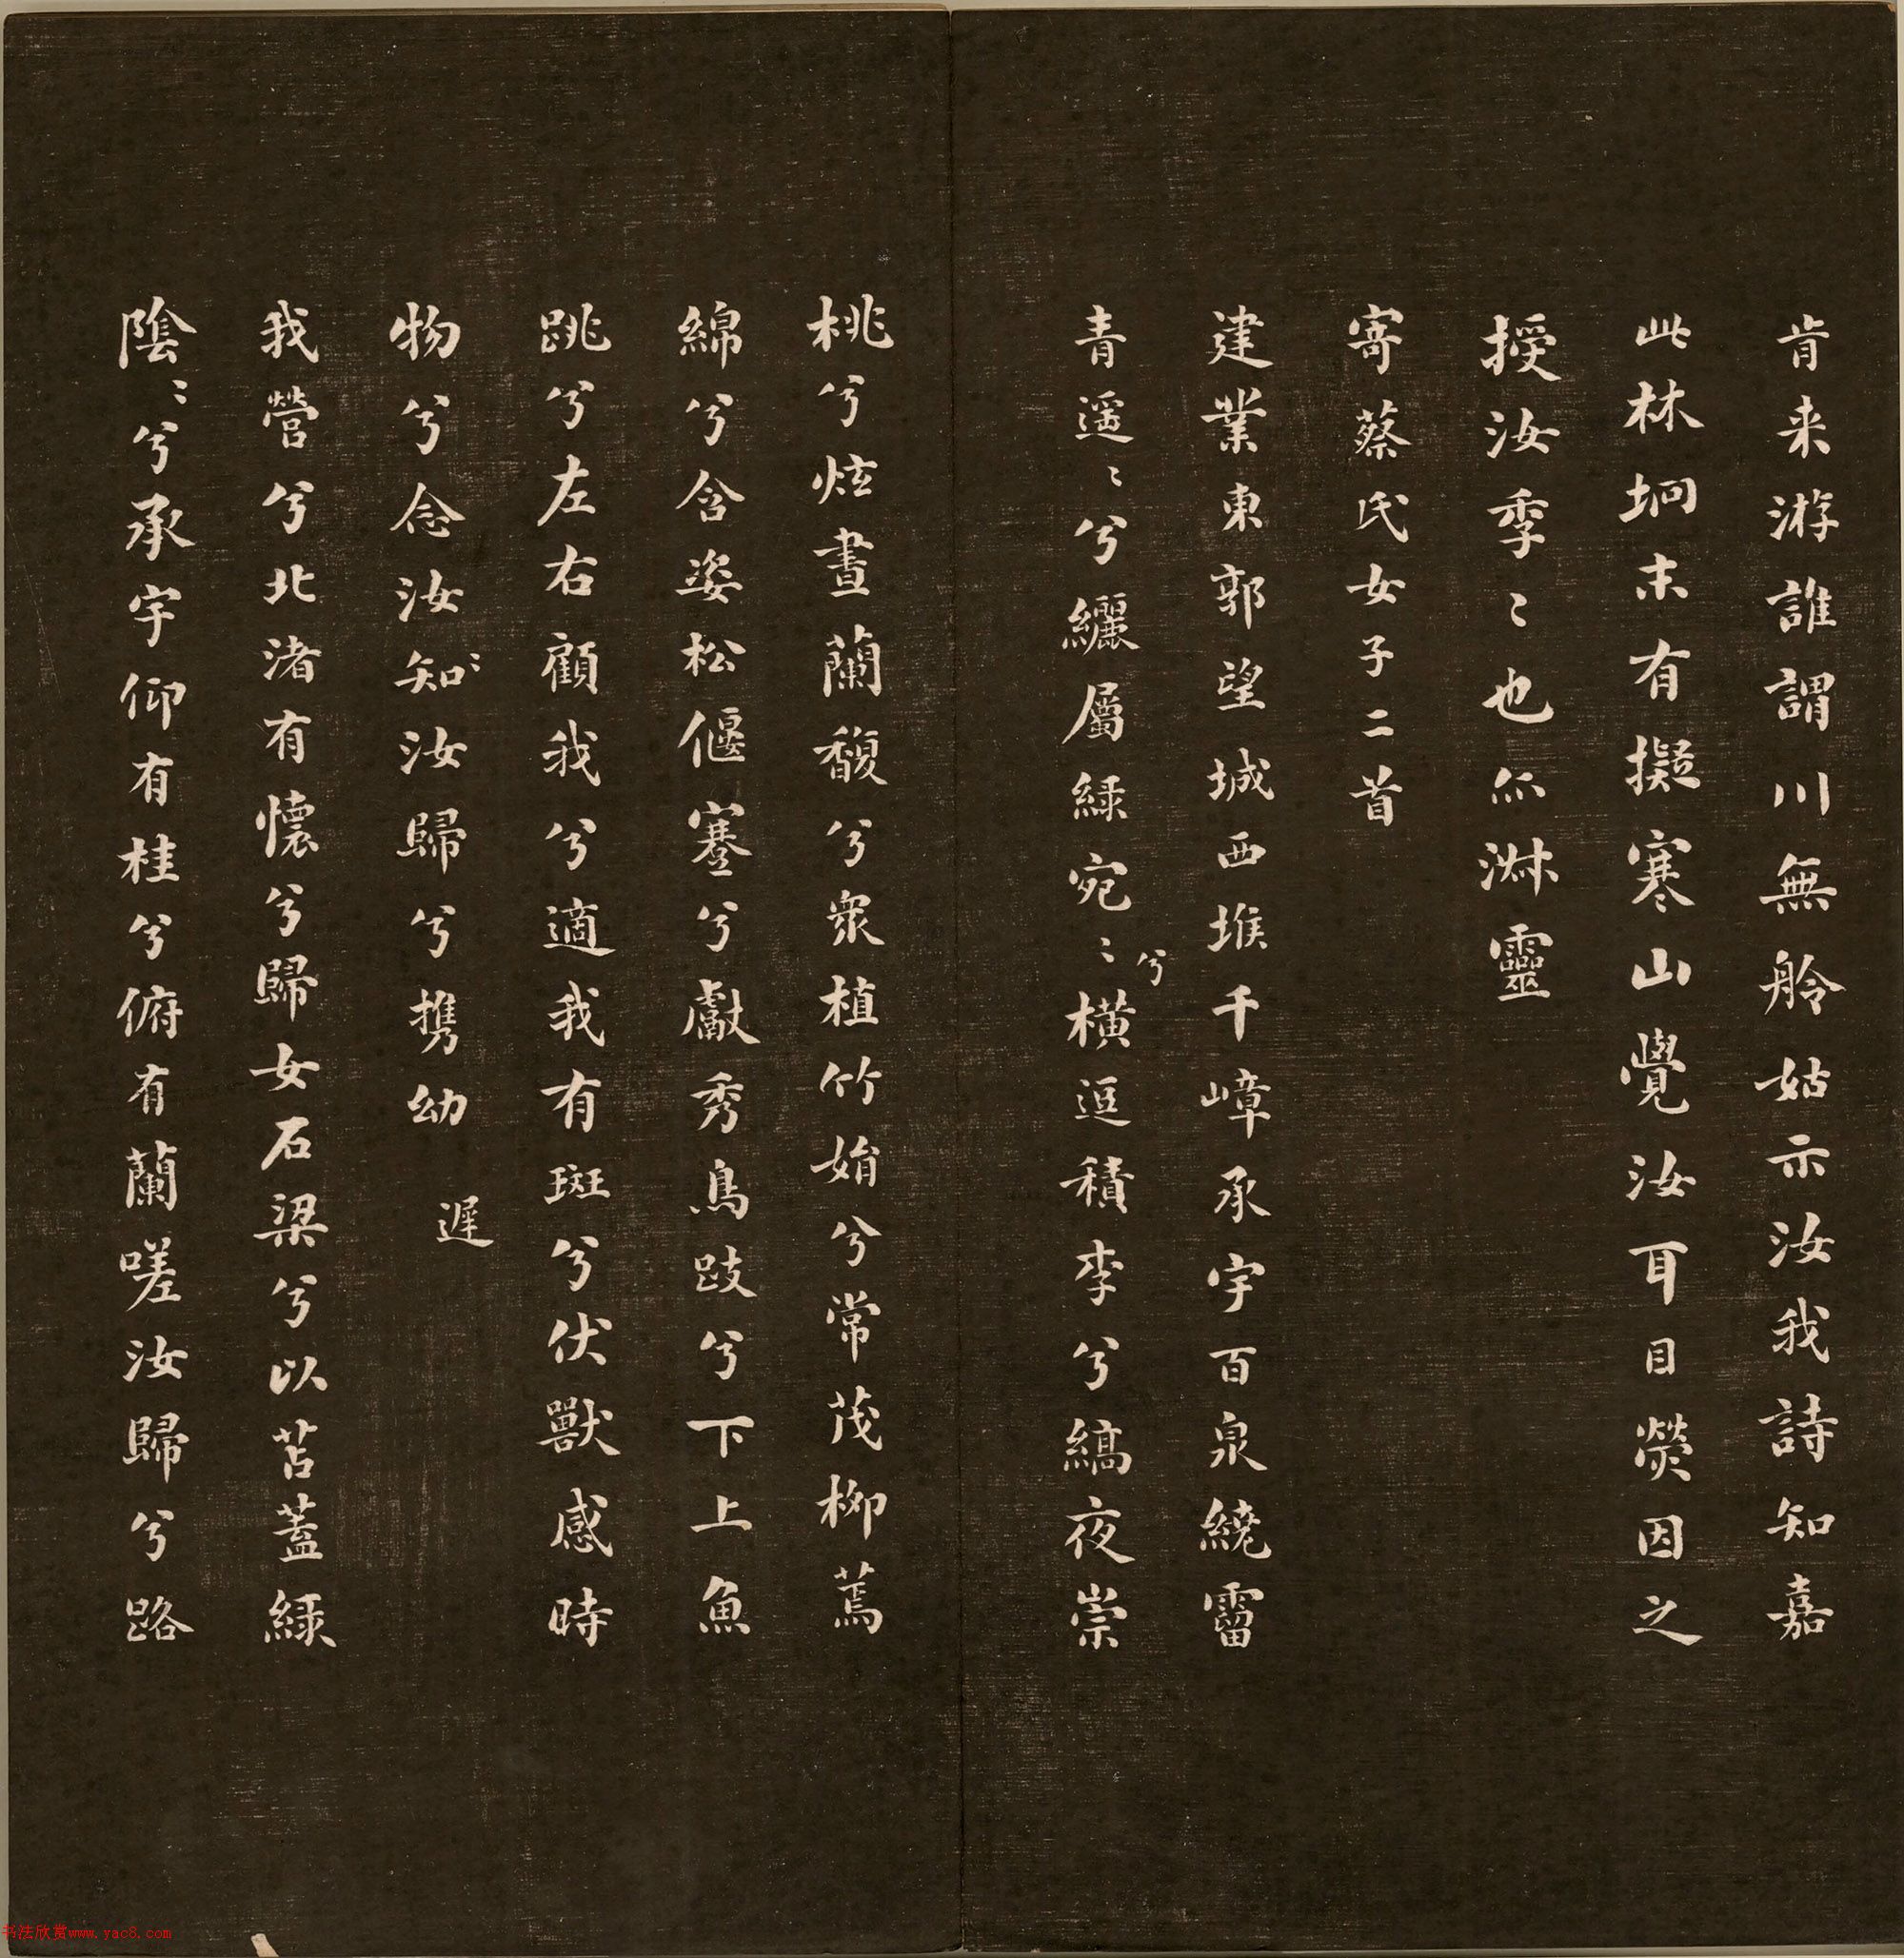 肯来游誰謂川無舲姑示汝我詩知嘉
此林坰末有擬寒山覺汝耳目熒因之
授汝季〻也亦淑靈
寄蔡氏女子二首
建業東郭望城西堠千嶂承宇百泉繞霤
青遥〻兮纚屬綠宛〻兮横逗積李兮縞夜崇
桃兮炫晝蘭馥兮衆植竹娟兮常茂柳蔫
綿兮含姿松偃蹇兮獻秀鳥跂兮下上魚
跳兮左右顧我兮適我有斑兮伏獸感時
物兮念汝知〻汝歸兮携幼 遲
我營兮北渚有懷兮歸女石梁兮以苫蓋綠
陰〻兮承宇仰有桂兮俯有蘭嗟汝歸兮路
书法欣赏www.yac8.com